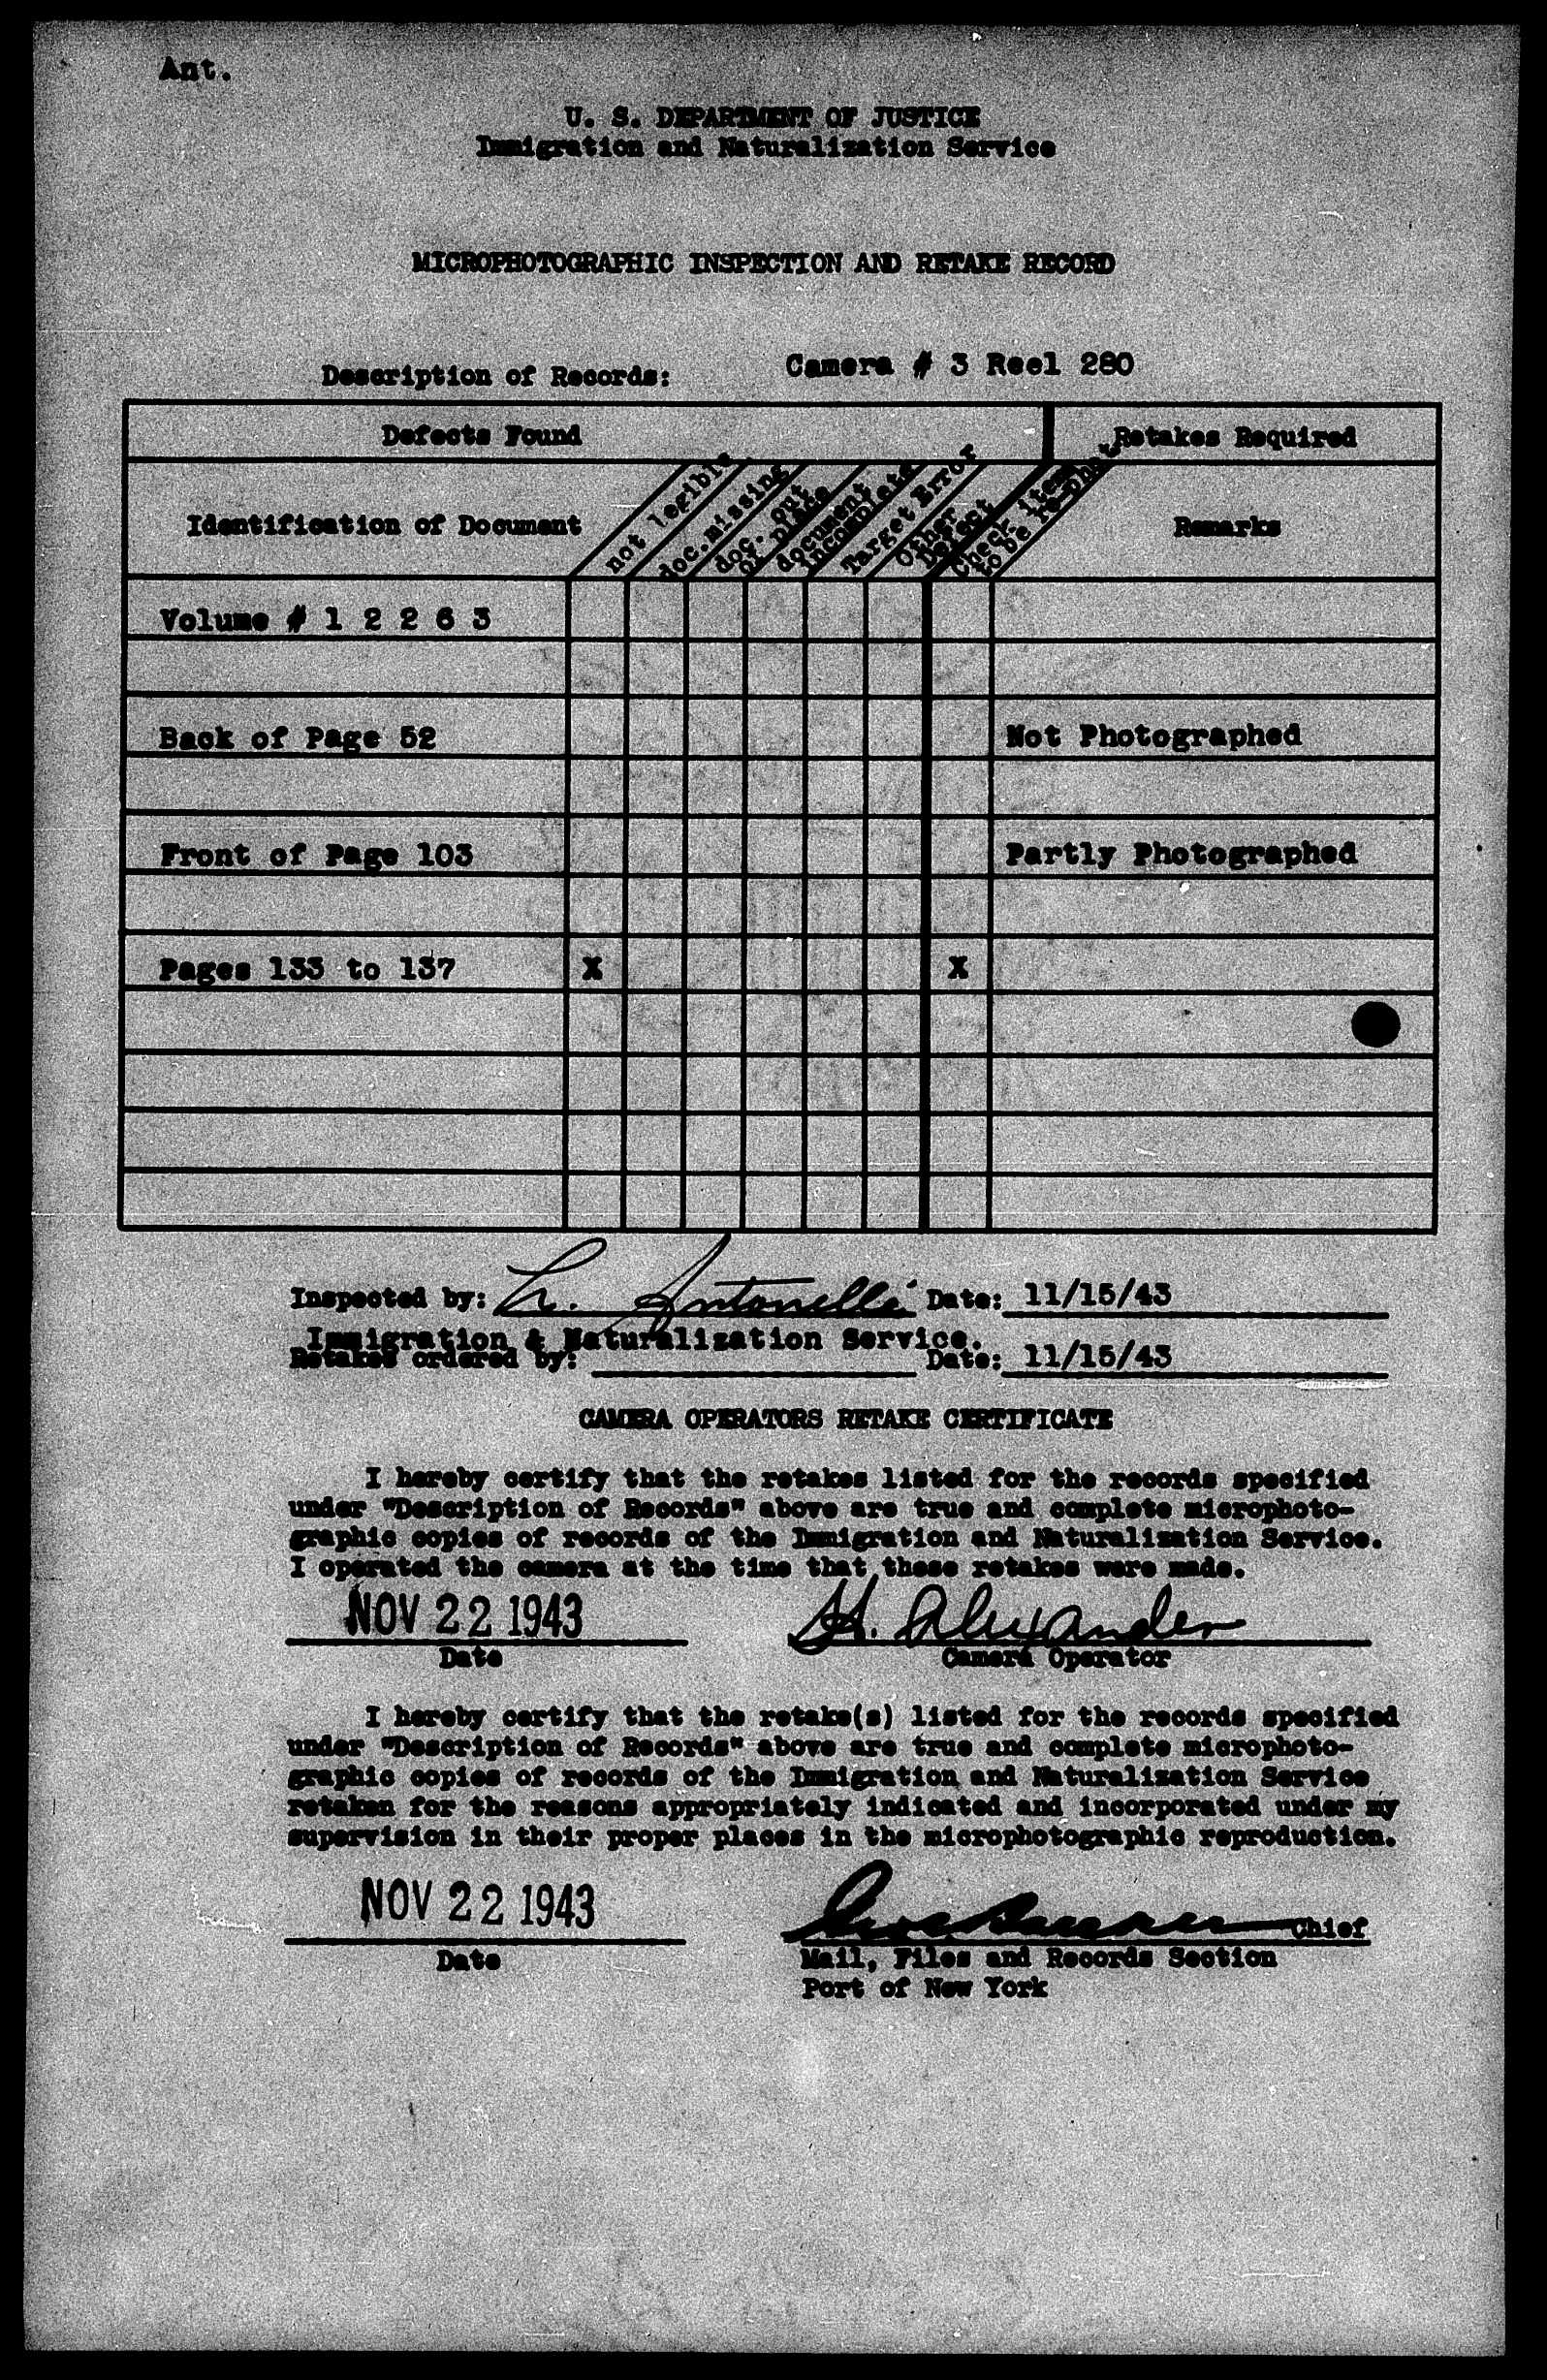 Ant.
U. S. DEPARTMENT OF JUSTICE
Immigration and Naturalization Service
MICROPHOTOGRAPHIC INSPECTION AND RETAKE RECORD
Description of Records: Camera # 3 Reel 280
Defects Found Retakes Required
Identification of Document
not legible
doc. missing
doc. out
of place
document
incomplete
Target Error
Other
Defect
Check item
to be re-phot.
Remarks
Volume # 1 2 2 6 3
Back of Page 52 Not Photographed
Front of Page 103 Partly Photographed
Pages 133 to 137 X X
Inspected by: L. Antonelli Date: 11/15/43
Immigration & Naturalization Service.
Retakes ordered by: Date: 11/15/43
CAMERA OPERATORS RETAKE CERTIFICATE
I hereby certify that the retakes listed for the records specified
under "Description of Records" above are true and complete microphoto-
graphic copies of records of the Immigration and Naturalization Service.
I operated the camera at the time that these retakes were made.
NOV 22 1943 H. Alexander
Date Camera Operator
I hereby certify that the retake(s) listed for the records specified
under "Description of Records" above are true and complete microphoto-
graphic copies of records of the Immigration and Naturalization Service
retaken for the reasons appropriately indicated and incorporated under my
supervision in their proper places in the microphotographic reproduction.
NOV 22 1943 Chief
Date Mail, Files and Records Section
Port of New York